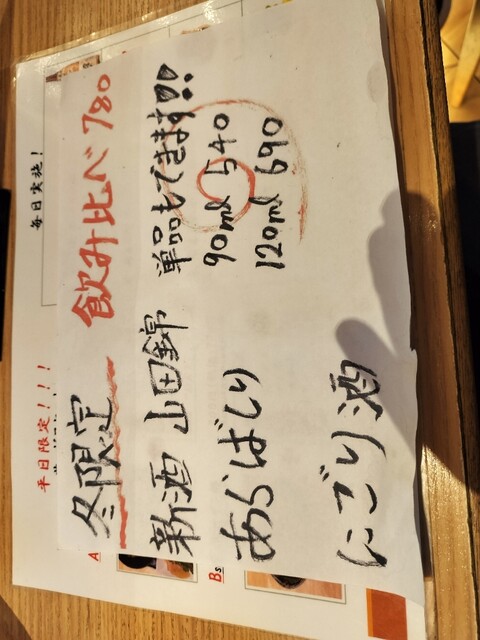 毎日実施！
平日限定！！！
A
冬限定 飲み比べ 780
新酒 山田錦 単品もできます!!
あらばしり 90ml 540
120ml 690
にごり酒
Bs